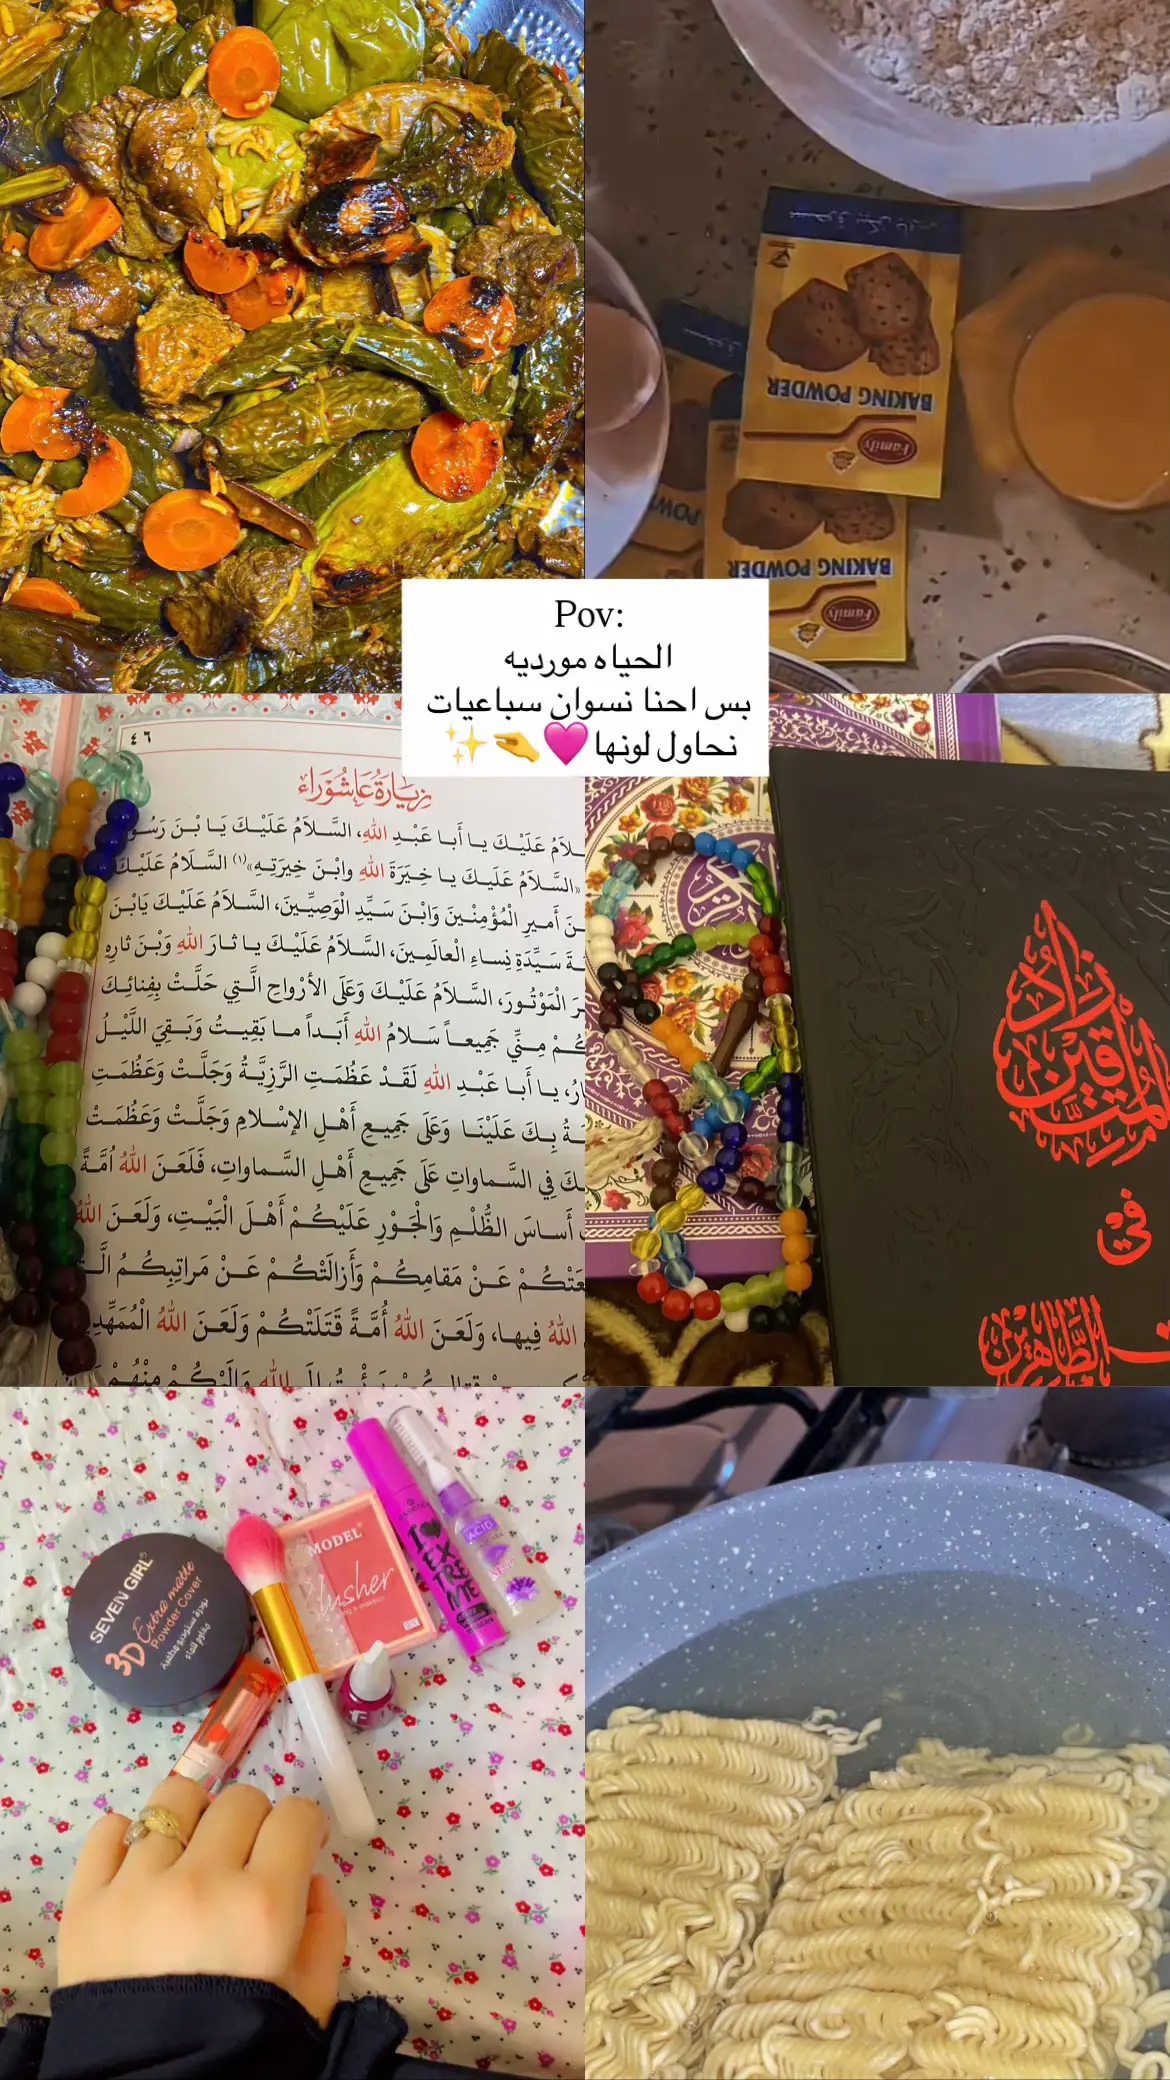 مسحوق بيكن باودر
BAKING POWDER
Family
BAKING POWDER
Family
Pov:
الحياه مورديه
بس احنا نسوان سباعيات
نحاول لونها🩷🫴✨
٤٦
زِيَارَةُ عَاشُورَاء
السَّلَامُ عَلَيْكَ يا أَبا عَبْدِ اللهِ، السَّلَامُ عَلَيْكَ يَا بْنَ
«السَّلَامُ عَلَيكَ يا خِيَرَةَ اللهِ وابْنَ خِيَرَتِهِ»(١) السَّلَامُ عَلَيْكَ
أَميرِ الْمُؤْمِنْينَ وَابْنَ سَيِّدِ الْوَصِيِّينَ، السَّلَامُ عَلَيْكَ يَابْنَ
سَيِّدَةِ نِساءِ الْعالَمِينَ، السَّلَامُ عَلَيْكَ يا ثارَ اللهِ وَبْنَ ثارِهِ
الْمَوْتُورَ، السَّلَامُ عَلَيْكَ وَعَلَى الأَرْواحِ الَّتِي حَلَّتْ بِفِنائِكَ
مِنِّي جَمِيعاً سَلامُ اللهِ أَبَداً ما بَقِيتُ وَبَقِيَ اللَّيْلُ
يا أَبا عَبْدِ اللهِ لَقَدْ عَظُمَتِ الرَّزِيَّةُ وَجَلَّتْ وَعَظُمَتِ
بِكَ عَلَيْنَا وَعَلَى جَمِيعِ أَهْلِ الإِسْلامِ وَجَلَّتْ وَعَظُمَتْ
فِي السَّماواتِ عَلَى جَمِيعِ أَهْلِ السَّماواتِ، فَلَعَنَ اللهُ أُمَّةً
أَساسَ الظُّلْمِ وَالْجَوْرِ عَلَيْكُمْ أَهْلَ الْبَيْتِ، وَلَعَنَ اللهُ
عَنْ مَقامِكُمْ وَأَزالَتْكُمْ عَنْ مَراتِبِكُمُ
اللهُ فِيها، وَلَعَنَ اللهُ أُمَّةً قَتَلَتْكُمْ وَلَعَنَ اللهُ الْمُمَهِّدِينَ
زَادُ
الْمُتَّقِينَ
فِي
الطَّاهِرِينَ
SEVEN GIRL
3D Extra matte
Powder Cover
MODEL
Blusher
essence
I ♥
EX
TRE
ME
ACID